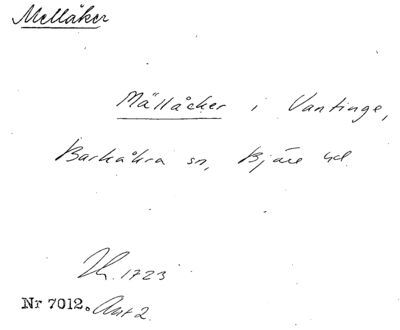 Mellåker
Mällåcker i Vantinge,
Barkåkra sn, Bjäre hd.
Jb. 1723
Nr 7012. Avt 2.